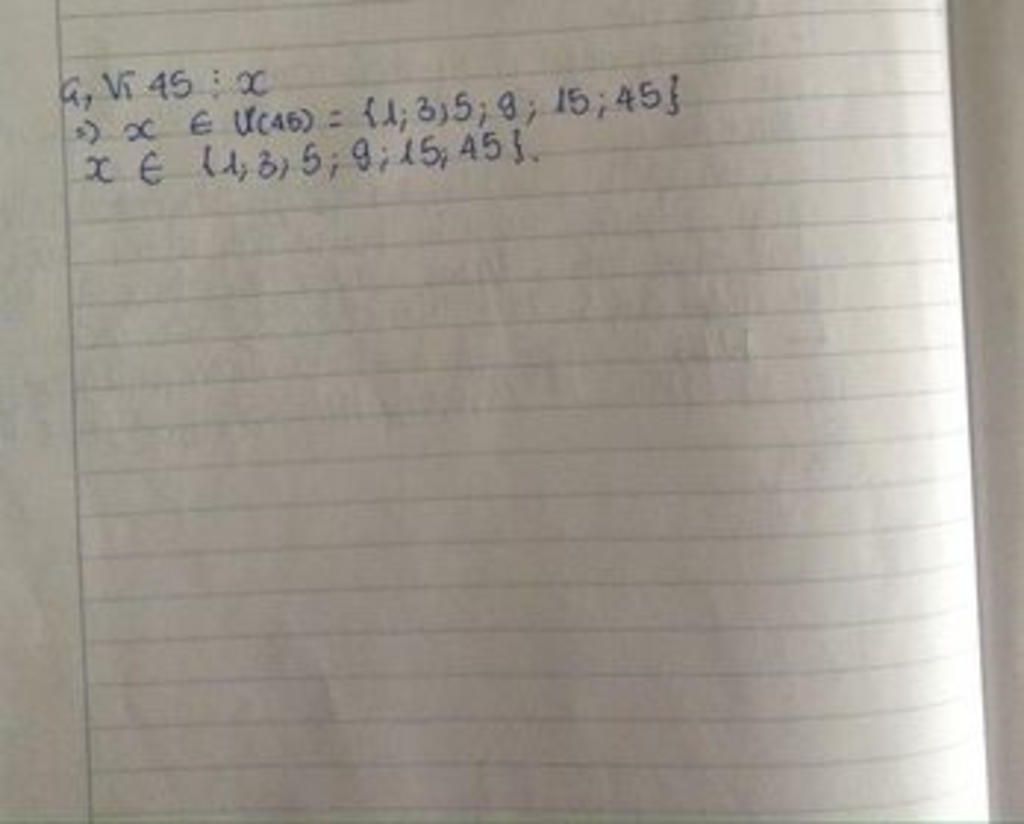 a, Vì 45 ⋮ x
=> x ∈ Ư(45) = {1; 3; 5; 9; 15; 45}
x ∈ {1; 3; 5; 9; 15; 45}.